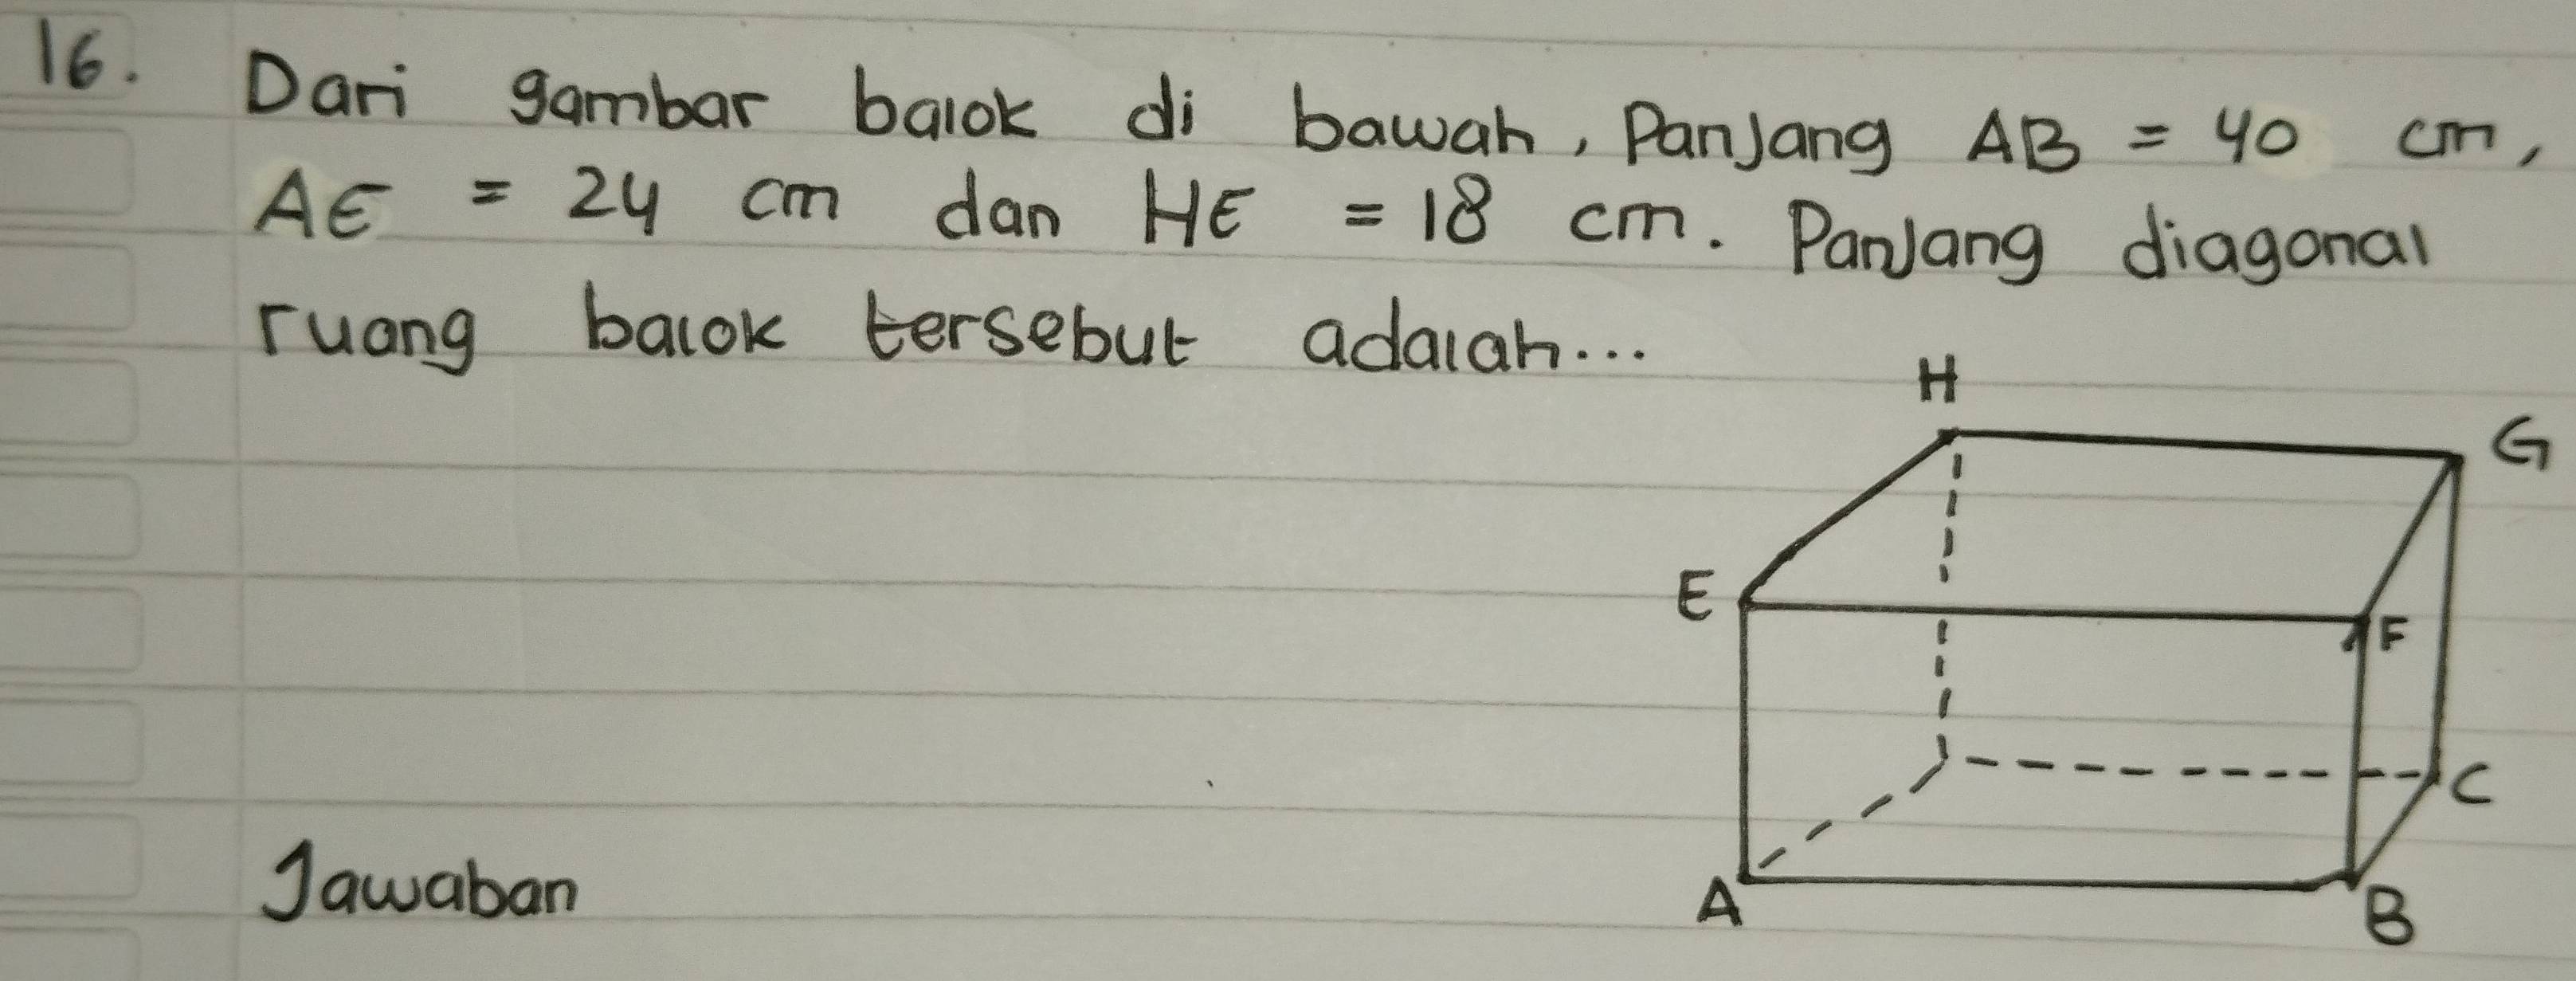 16. Dari gambar balok di bawah, Panjang AB = 40 cm,
AE = 24 cm dan HE = 18 cm. Panjang diagonal
ruang balok tersebut adalah...
H
G
E
F
C
A
B
Jawaban